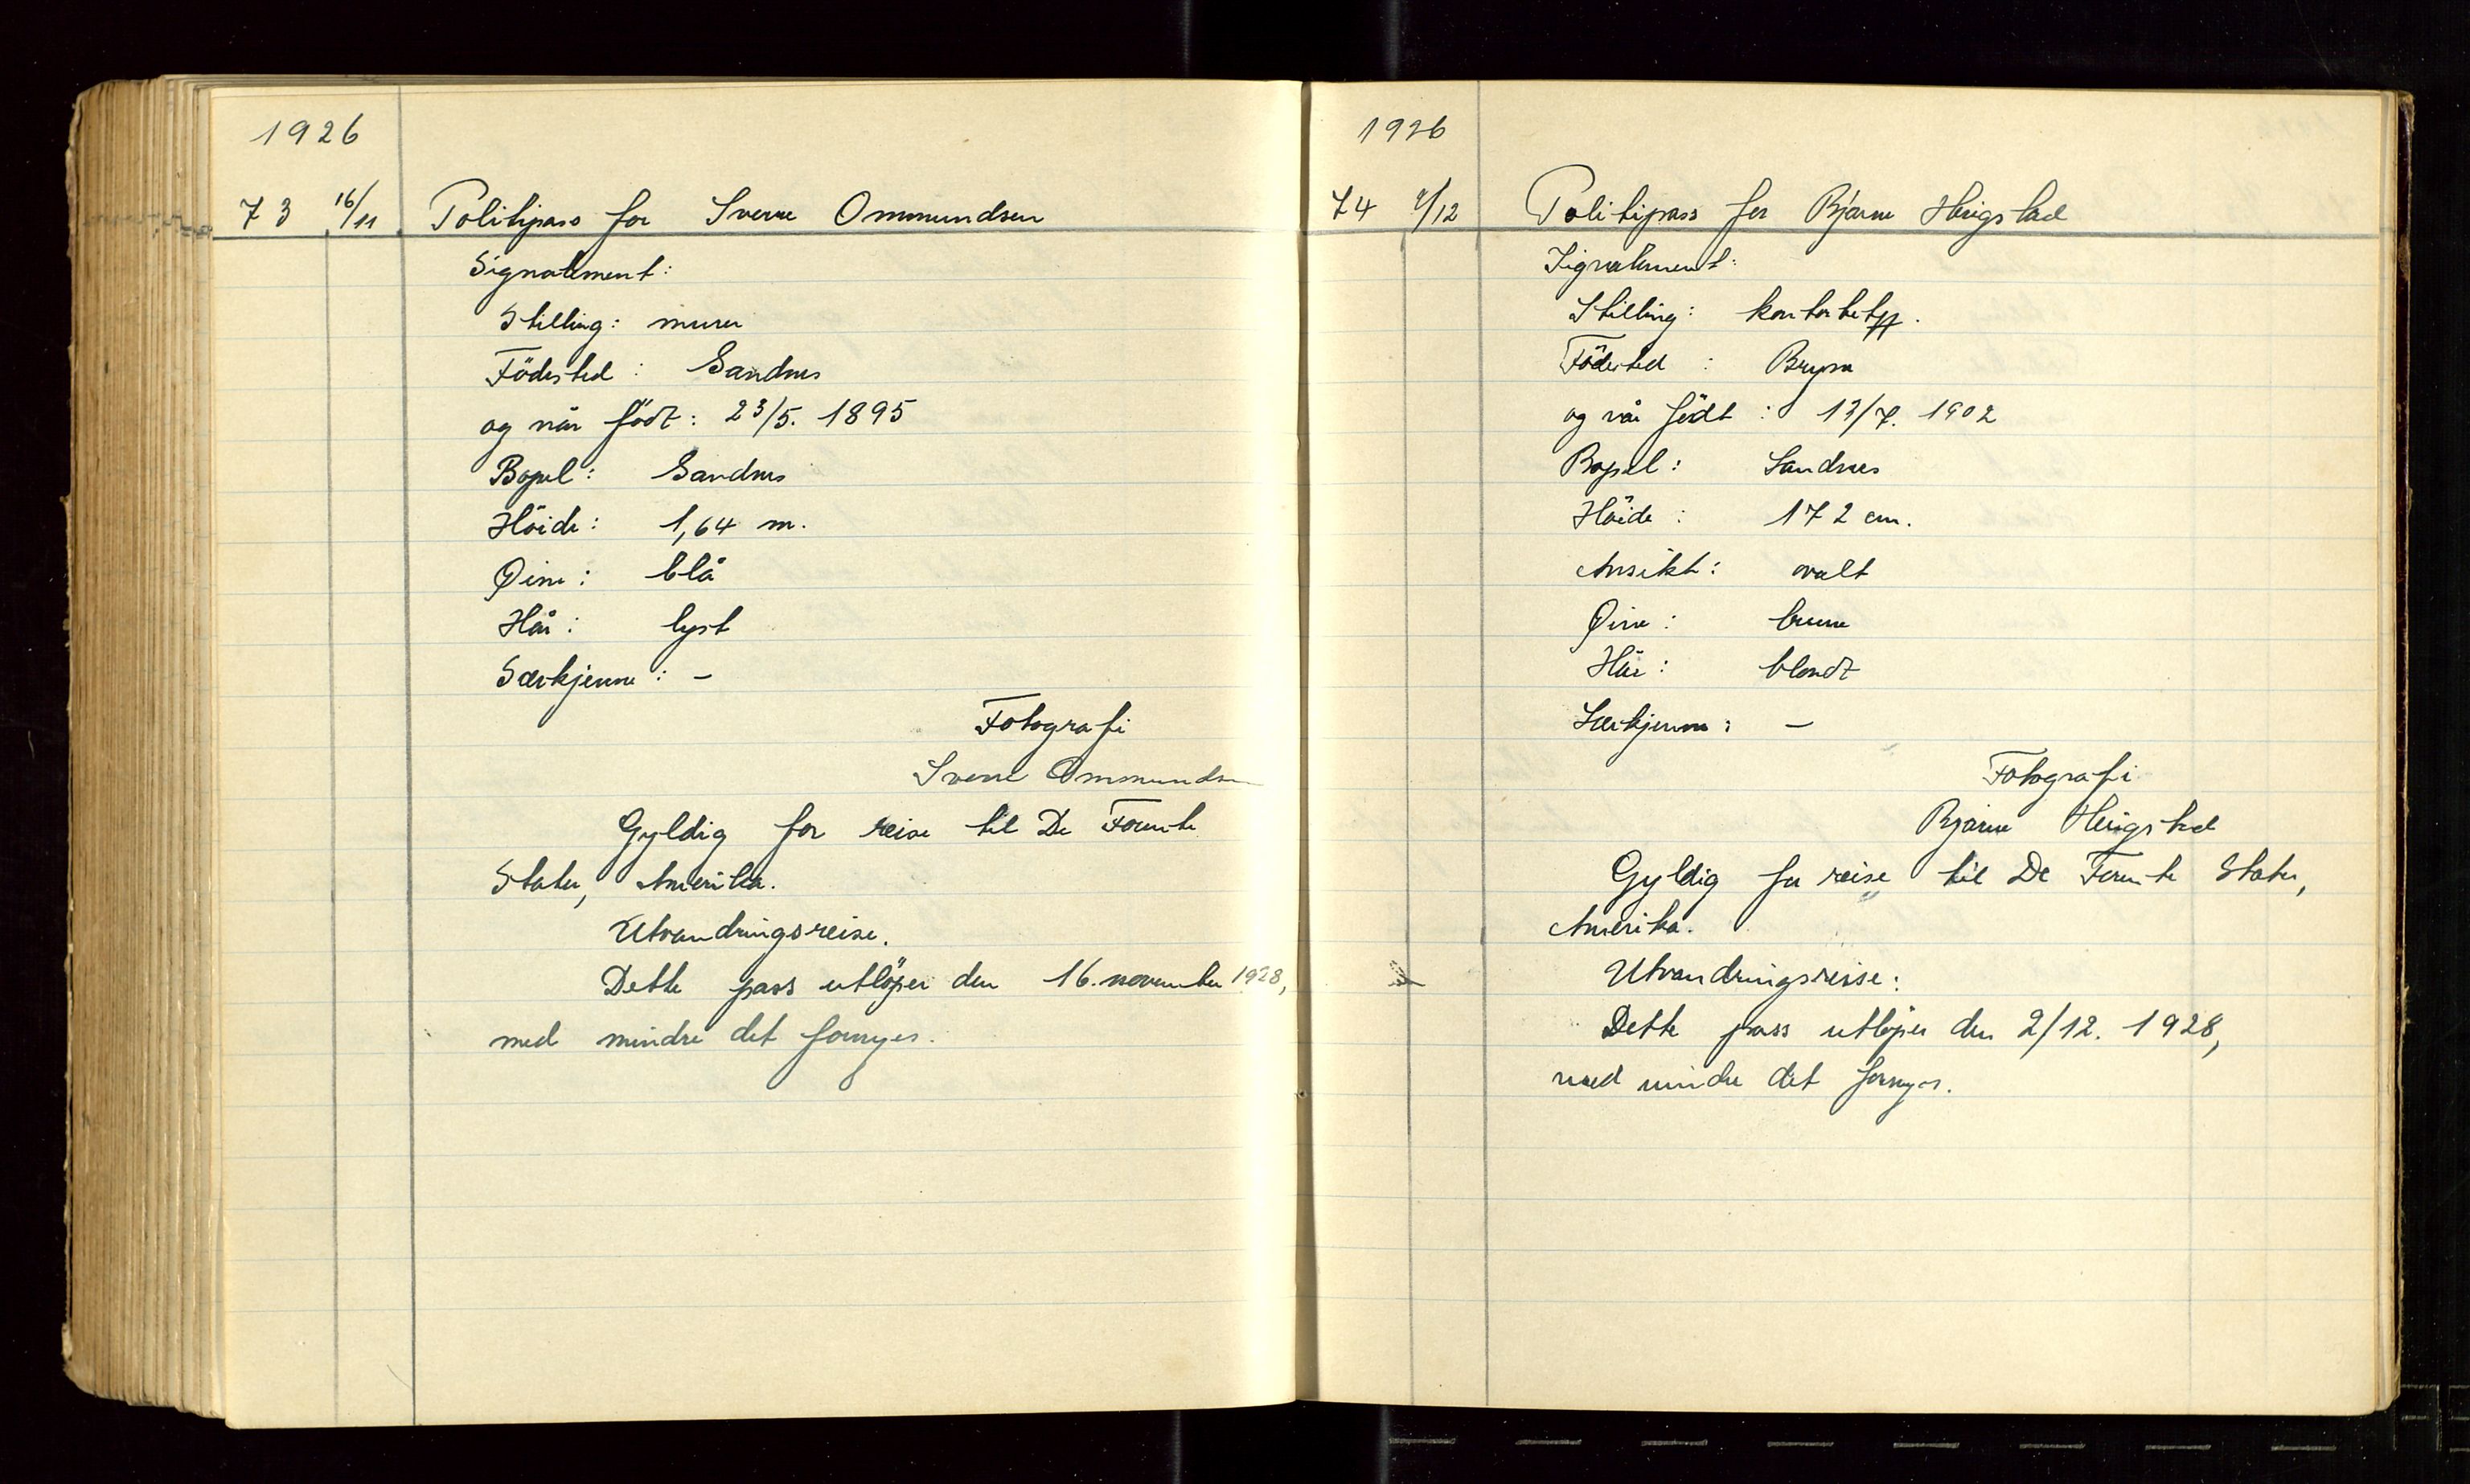 1926
73 16/11 Politipass for Sverre Ommundsen
Signalement:
Stilling: murer
Födested: Sandnes
og når födt: 23/5. 1895
Bopel: Sandnes
Höide: 1,64 m.
Øine: blå
Hår: lyst
Særkjenne: -
Fotografi
Sverre Ommundsen
Gyldig for reise til De Forente
Stater, Amerika.
Utvandringsreise.
Dette pass utlöper den 16. november 1928,
med mindre det fornyes.
1926
74 2/12 Politipass for Bjarne Heigstad
Signalement:
Stilling:
Födested: Bryne
og når födt: 13/7. 1902
Bopel: Sandnes
Höide: 172 cm.
Ansikt: ovalt
Øine: brune
Hår: blondt
Særkjenne: -
Fotografi
Bjarne Heigstad
Gyldig for reise til De Forente Stater,
Amerika.
Utvandringsreise.
Dette pass utlöper den 2/12. 1928,
med mindre det fornyes.